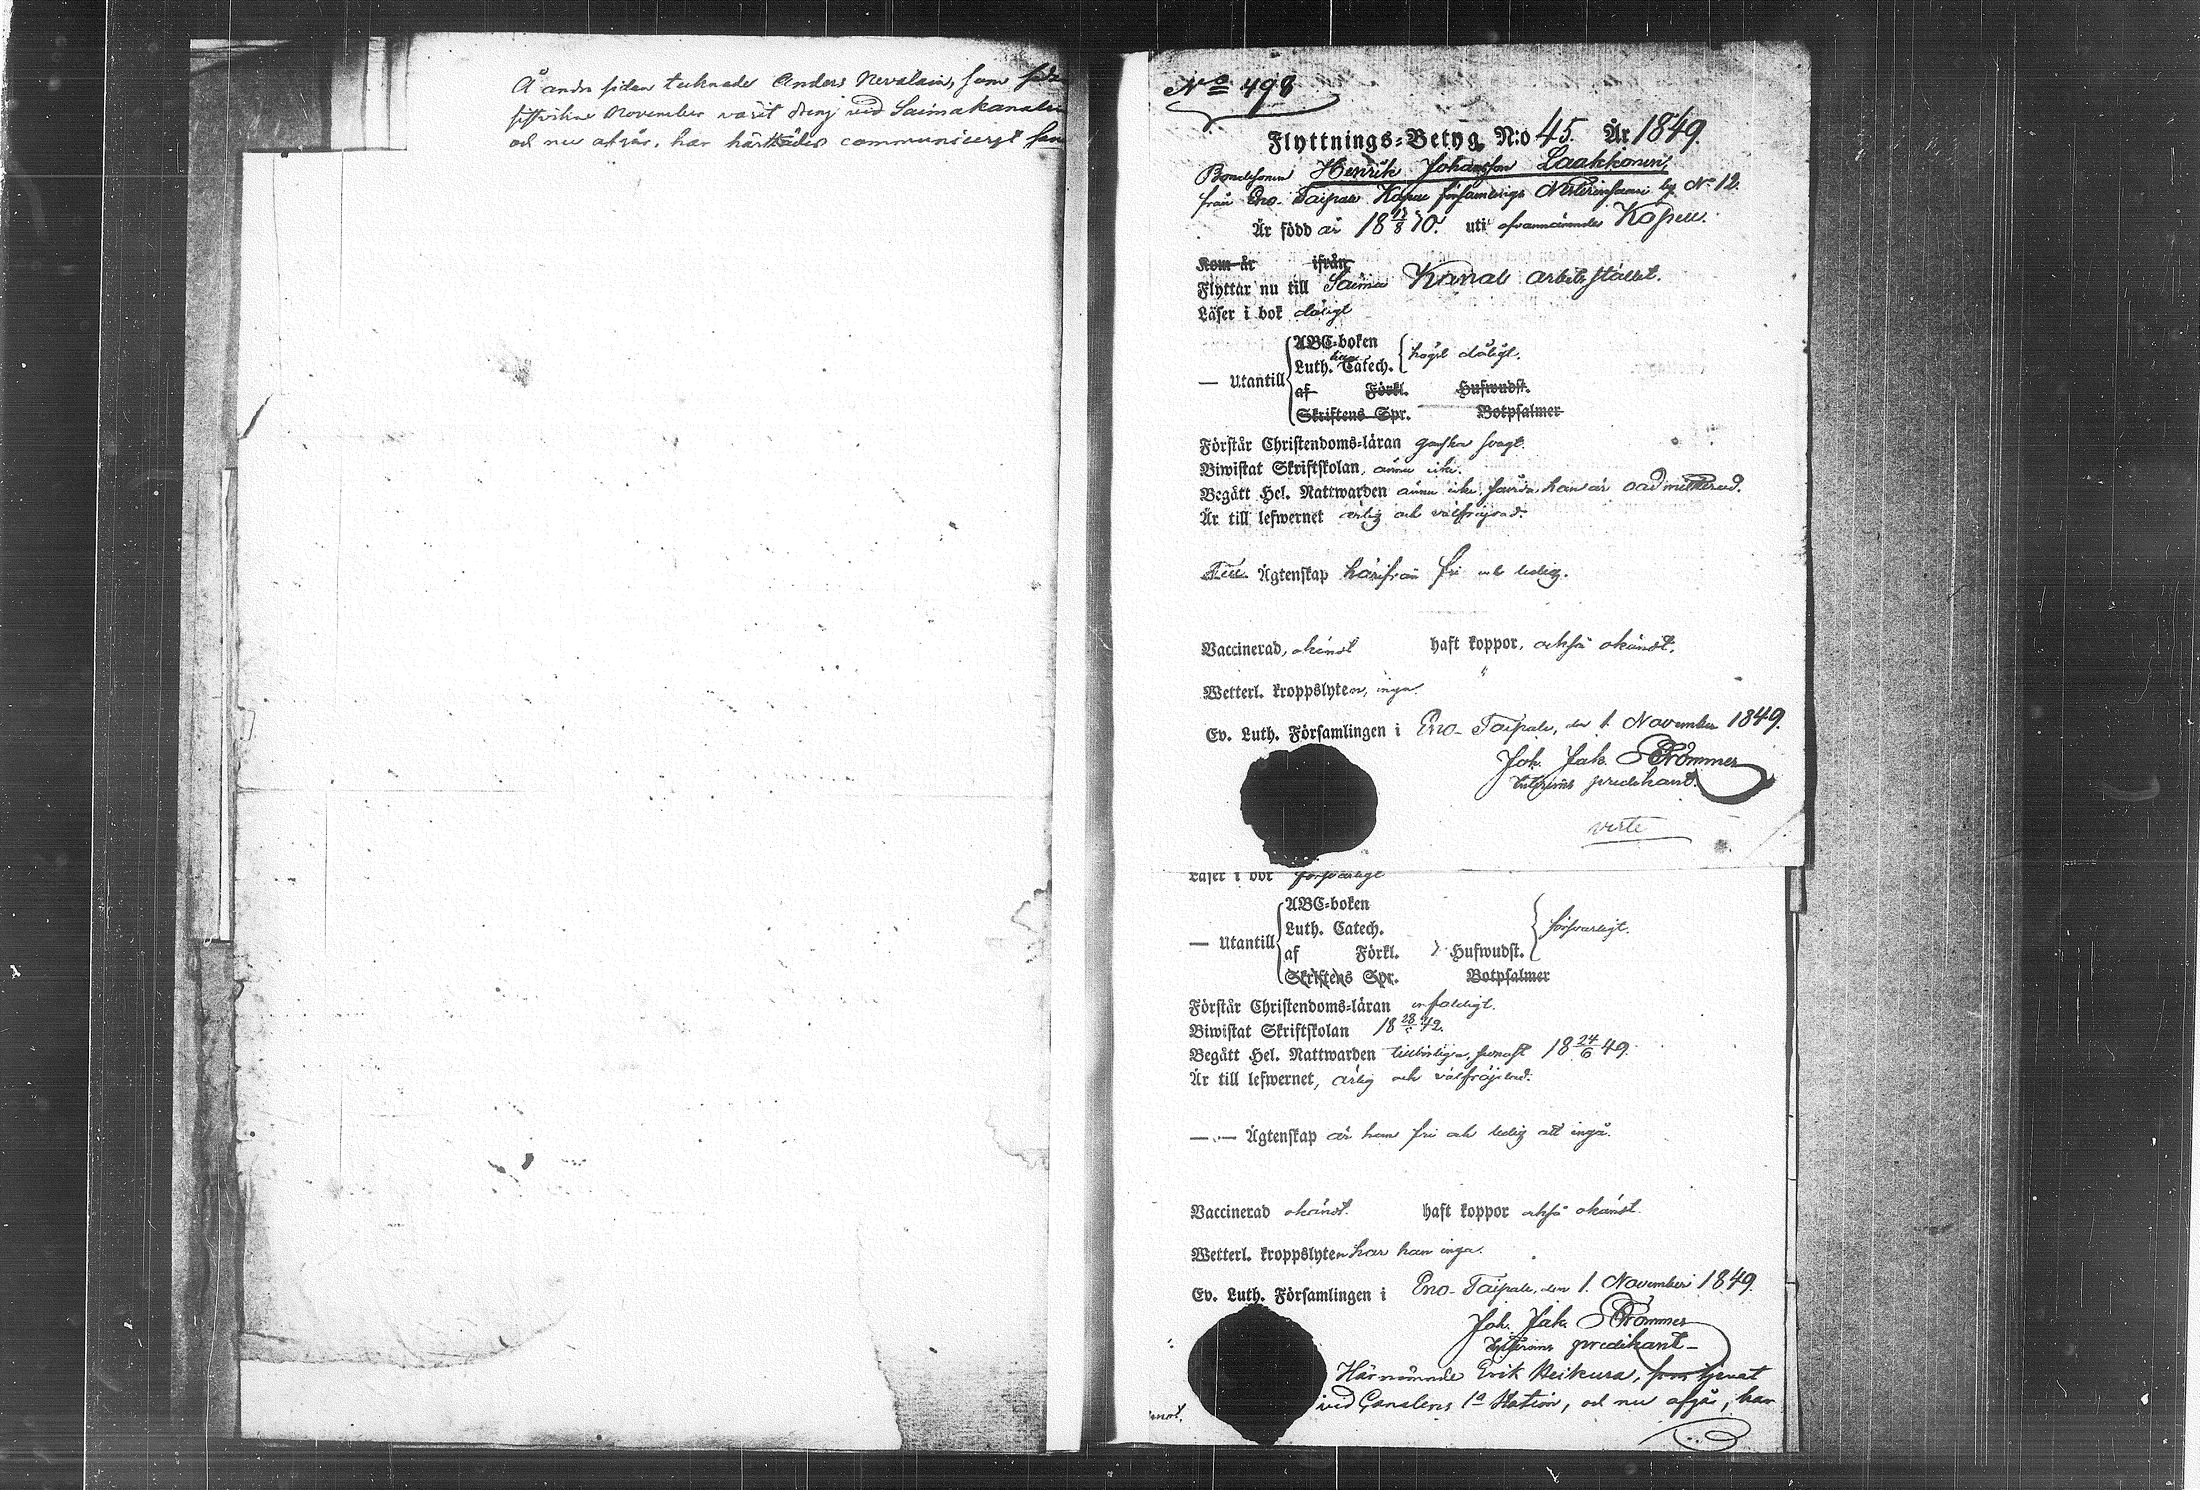 Å andra sidan tecknade Anders Nevalain, som
November varit dreng vid Saimakanalen
och nu afgår, har härstädes communicerat
No 498
Flyttnings-Betyg N:o 45. År 1849.
Bondesonen Henrik Johansson Laakkonen,
från Eno-Taipale Kapell församlings by No 12.
Är född år 18 10. uti ofvannämnde Kapell.
Kom år ifrån
Flyttar nu till Saima Kanal arbetsstället.
Läser i bok dåligt
ABC-boken
Luth. Catech. högst dåligt.
— Utantill
af Förkl. Hufwudst.
Skriftens Spr. Botpsalmer
Förstår Christendoms-läran ganska svagt.
Biwistat Skriftskolan, ännu icke.
Begått Hel. Nattwarden ännu icke, han är oadmitterad.
Är till lefwernet ärlig och välfräjdad.
Till Ägtenskap härifrån fri och ledig.
Vaccinerad, okändt haft koppor, också okändt.
Wetterl. kroppslyten, inga.
Ev. Luth. Församlingen i Eno-Taipale, den 1. November 1849.
Joh. Jak. Strömmer
Interims predikant.
verte
Läser i bok försvarligt
ABC-boken
Luth. Catech. försvarligt.
— Utantill
af Förkl. Hufwudst.
Skriftens Spr. Botpsalmer
Förstår Christendoms-läran enfaldigt.
Biwistat Skriftskolan 18 28 42.
Begått Hel. Nattwarden tillbörligen, senast 18 24/6 49.
Är till lefwernet, ärlig och välfräjdad.
— Ägtenskap är han fri och ledig att ingå.
Vaccinerad okändt. haft koppor också okändt.
Wetterl. kroppslyten har han inga.
Ev. Luth. Församlingen i Eno-Taipale, den 1. November 1849.
Joh. Jak. Strömmer
Interims predikant
Härnämnde Erik Heikura, som tjenat
vid Canalens 1a Station, och nu afgår, har